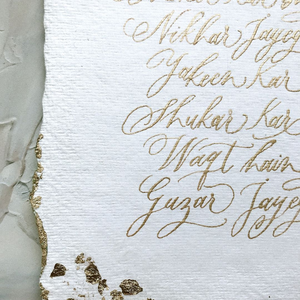 Nikhar Jayeg
Yakeen Kar
Shukar Kar
Waqt hain
Guzar Jayeg